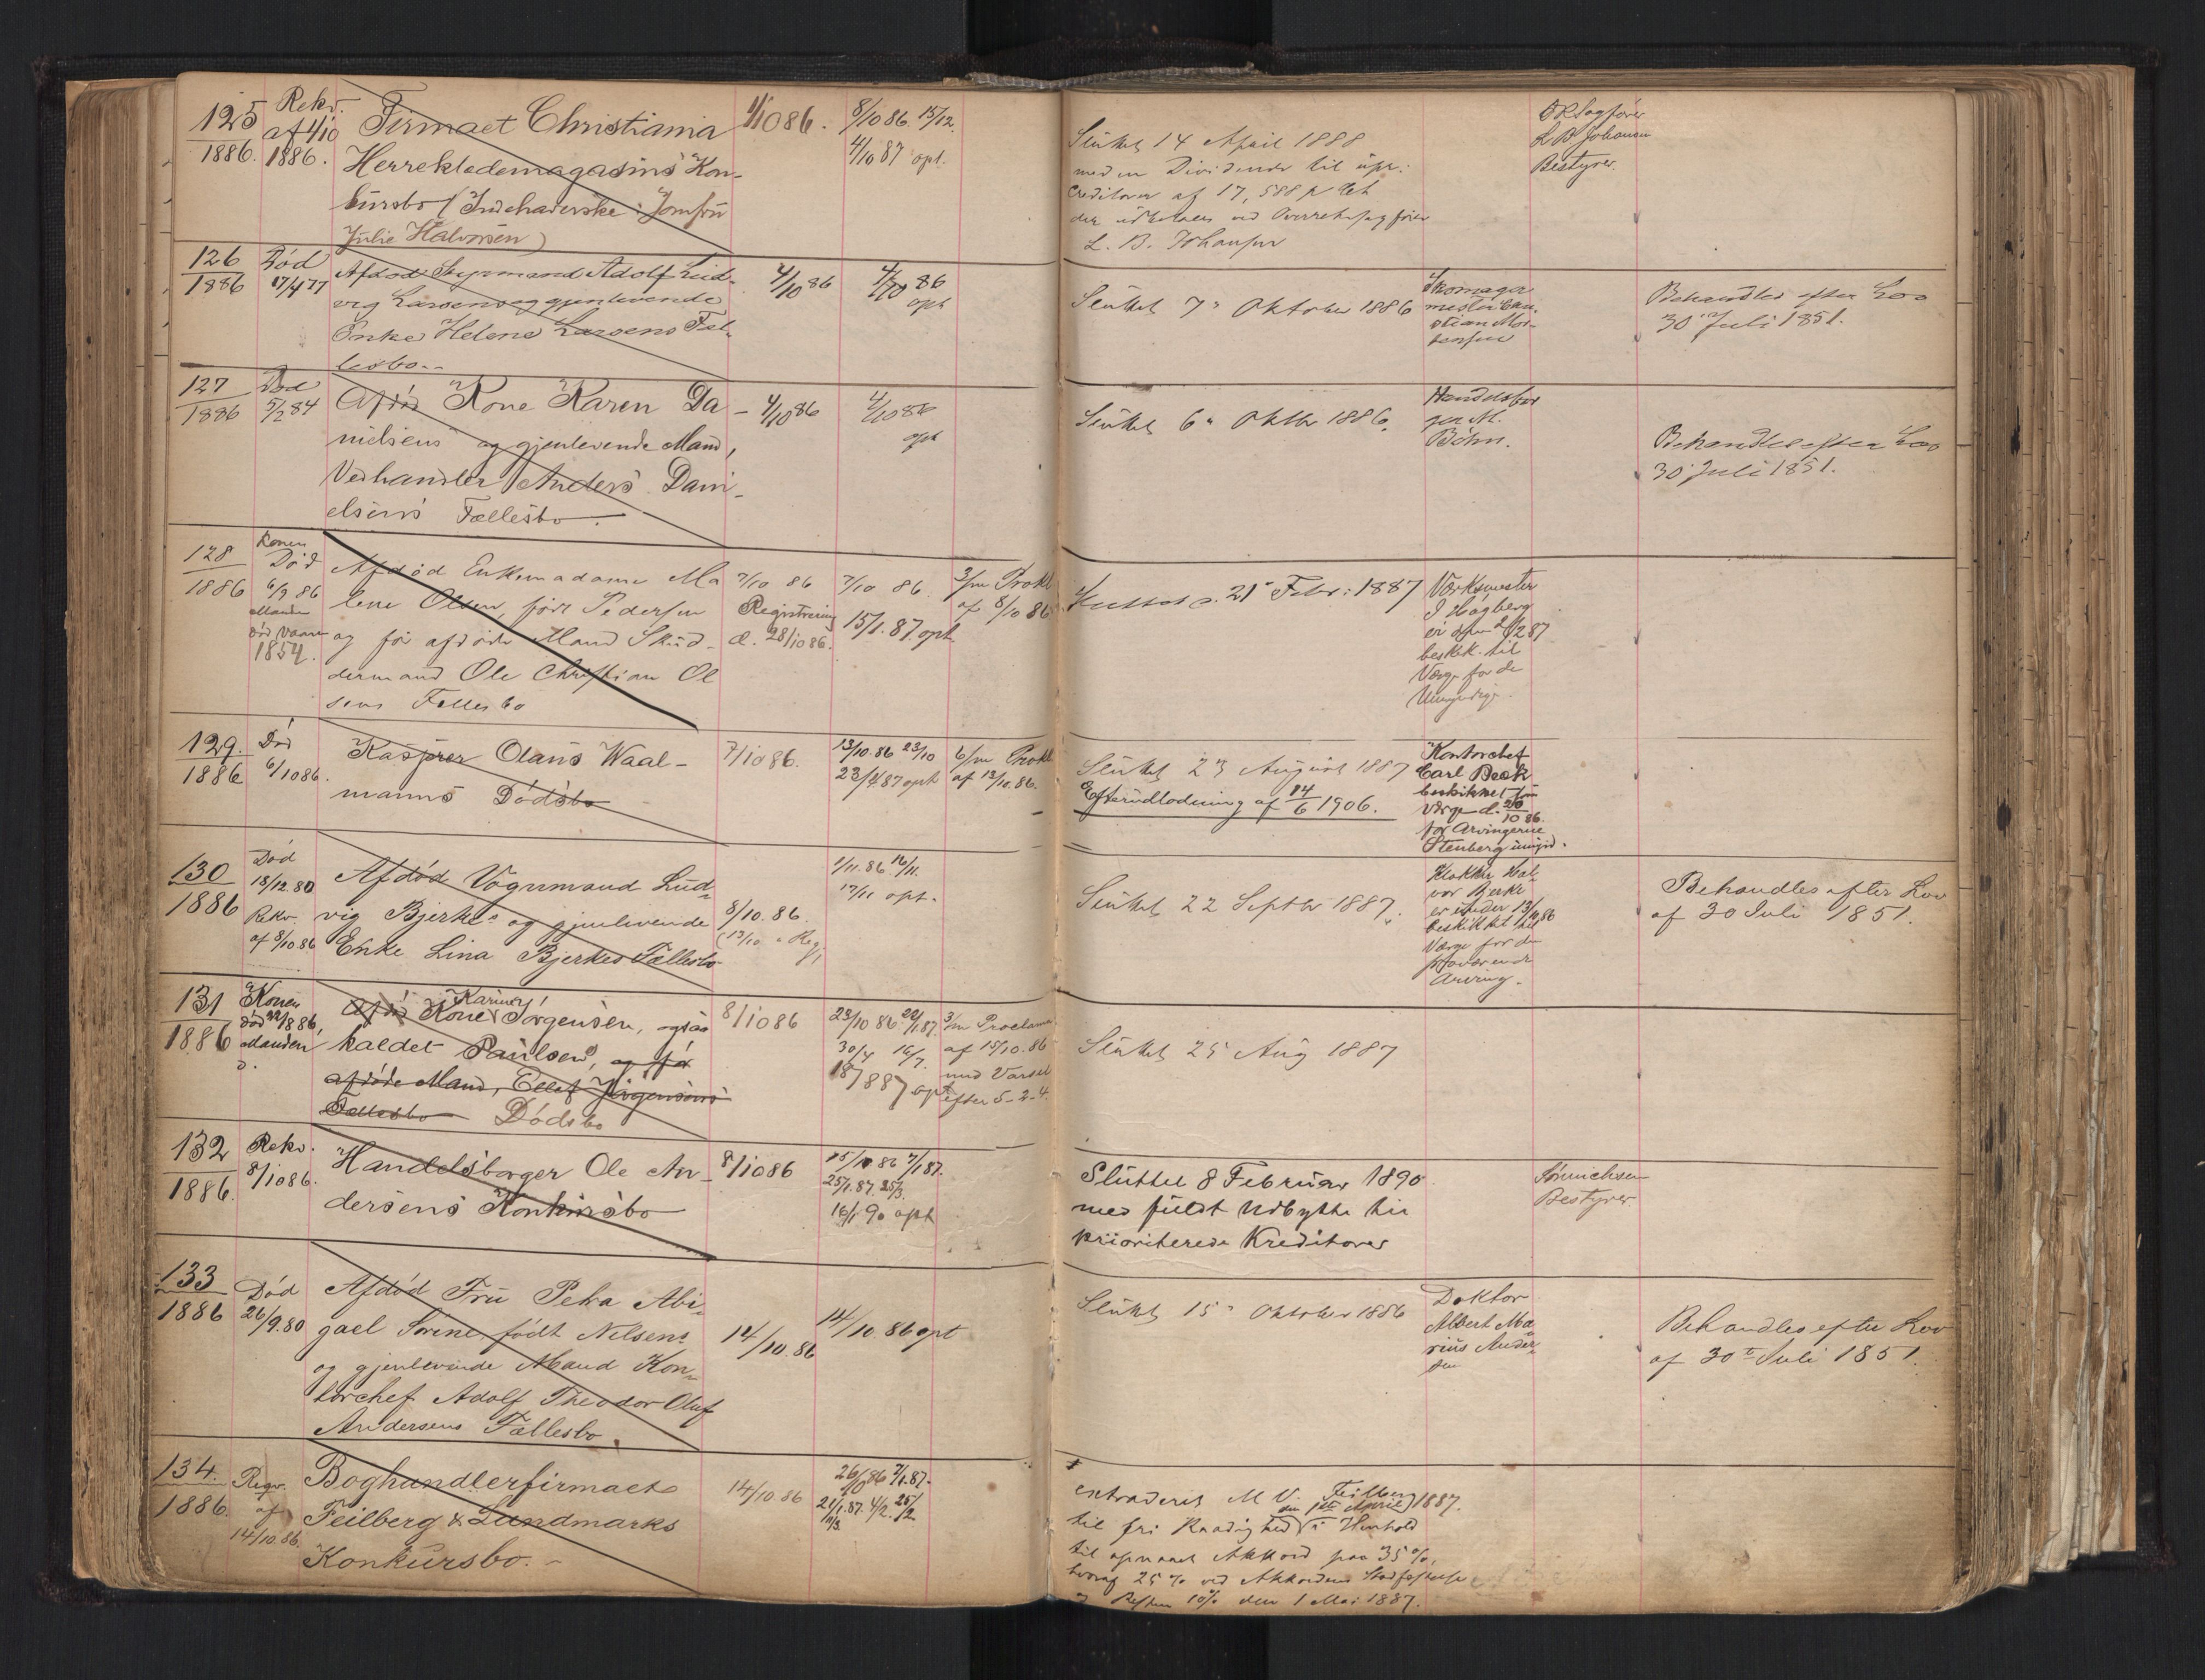 125
1886.
Rekv.
af 4/10
1886.
Firmaet Christiania
Herreklædemagasins Kon-
kursbo (Indehaverske: Jomfru
Julie Halvorsen)
4/10 86.
8/10 86 15/12.
4/10 87 opt.
Sluttet 14 April 1888
med en Dividende til upr:
Creditorer af 17,588 p Ct
der udbetales ved Overretssagfører
L. B. Johansen
ORSagfører
L B Johansen
Bestyrer.
126
1886
Død
17/4 77
Afdød Styrmand Adolf Lud-
vig Larsens og gjenlevende
Enke Helene Larsens Fæl-
lesbo..
4/10 86
4/10 86
opt
Sluttet 7de Oktober 1886
Skomager
mester Chri-
stian Mor-
tensen
Behandles efter Lov
30 Juli 1851.
127
1886
Død
5/2 84
Afdød Kone Karen Da-
nielsens og gjenlevende Mand,
Vedhandler Anders Dani-
elsens Fællesbo.
4/10 86
4/10 86
opt
Sluttet 6te Oktbr 1886.
Handelsbor
ger M.
Böhn.
Behandles efter Lov
30 Juli 1851.
128
1886
Konen
Død
6/9 86
Manden
død Vaaren
1854.
Afdød Enkemadame Ma
lene Olsen, født Pedersen
og før afdøde Mand Skud-
dermand Ole Christian Ol
sens Fællesbo
7/10 86
Registrering
d. 28/10 86.
7/10 86.
15/1. 87 opt
3/m Prokl
af 8/10 86
Sluttet d. 21de Febr: 1887
Værksmester
J Høgberg
er den 2/2 87
beskik. til
Værge for de
Umyndige.
129.
1886
Død
6/10 86.
Kasper Olaus Waal-
manns Dødsbo
7/10 86.
13/10. 86 23/10
23/4 87 opt
6/m Prokl
af 13/10. 86.
Sluttet 23 August 1887
Efterudlodning af 14/6 1906.
Kontorchef
Carl Beck
beskikket som
Værge d. 20/10 86.
for Arvingerne
Stenberg umynd.
130
1886
Død
18/12. 80
Rekv.
af 8/10 86
Afdød Vognmand Lud-
vig Bjerkes og gjenlevende
Enke Lina Bjerkes Fællesbo
8/10. 86.
(13/10 Reg)
1/11. 86 16/11.
17/11 opt.
Sluttet 22 Septbr 1887.
Klokker Hal-
vor Bjerke
er under 13/10 86
beskikket til
Værge for de
fraværende
Arving.
Behandles efter Lov
af 30 Juli 1851.
131
1886
Konen
død 22/1 86,
Manden
d.
Afdød Kone Karine Jørgensen, ogsaa
kaldet Paulsen, og før
afdøde Mand, Ellef Jørgensens
Fællesbo Dødsbo
8/10 86
23/10 86 22/1 87.
30/4 16/7.
18/8 87 opt
3/m Proclama
af 15/10. 86
med Varsel
efter 5-2-4.
Sluttet 25 Aug 1887
132
1886.
Rekv.
8/10 86.
Handelsborger Ole An-
dersens Konkursbo
8/10 86
15/10 86 7/1 87.
25/1. 87. 25/3.
16/1 90 opt
Sluttet 8 Februar 1890
med fuldt Udbytte til
prioriterede Kreditorer
Sønnichsen
Bestyrer
133
1886
Død
26/9. 80
Afdød Fru Petra Abi-
gael Sørine, født Nilsens
og gjenlevende Mand Kon-
torchef Adolf Theodor Oluf
Andersens Fællesbo.
14/10. 86
14/10. 86 opt
Sluttet 15de Oktober 1886
Doktor
Albert Ma-
rius Ander-
sen
Behandles efter Lov
af 30te Juli 1851.
134.
1886.
Reqv.
af
14/10. 86.
Boghandlerfirmaet
Feilberg & Landmarks
Konkursbo.
14/10. 86
26/10 86 7/1. 87.
21/1. 87. 4/2. 25/2
11/3.
extraderet M V. Feilberg
den 1ste April 1887.
til fri Raadighed i Henhold
til opnaaet Akkord paa 35 %,
hvoraf 25 % ved Akkordens Stadfæstelse
og Resten 10% den 1 Mai 1887.